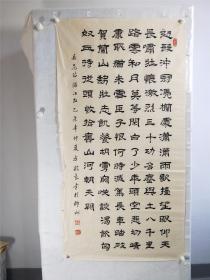 怒髮沖冠憑欄處瀟瀟雨歇抬望眼仰天
長嘯壯懷激烈三十功名塵與土八千里
路雲和月莫等閒白了少年頭空悲切靖
康恥猶未雪臣子恨何時滅駕長車踏破
賀蘭山缺壯志飢餐胡虜肉笑談渴飲匈
奴血待從頭收拾舊山河朝天闕
岳飛詞滿江紅己亥年仲夏